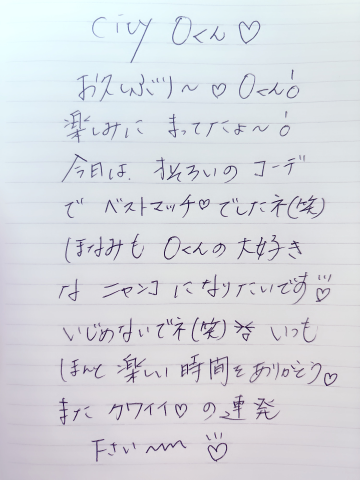 City Oくん♡
お久しぶり〜♡Oくん!
楽しみに まってたよ〜!
今日は、おそろいの コーデ
で ベストマッチ♡でしたネ(笑)
ほなみも Oくんの大好き
な ニャンコ になりたいです♡
いじめないでネ(笑) いつも
ほんと 楽しい時間をありがとう♡
また カワイイ♡の連発
下さい〜〜 ♡